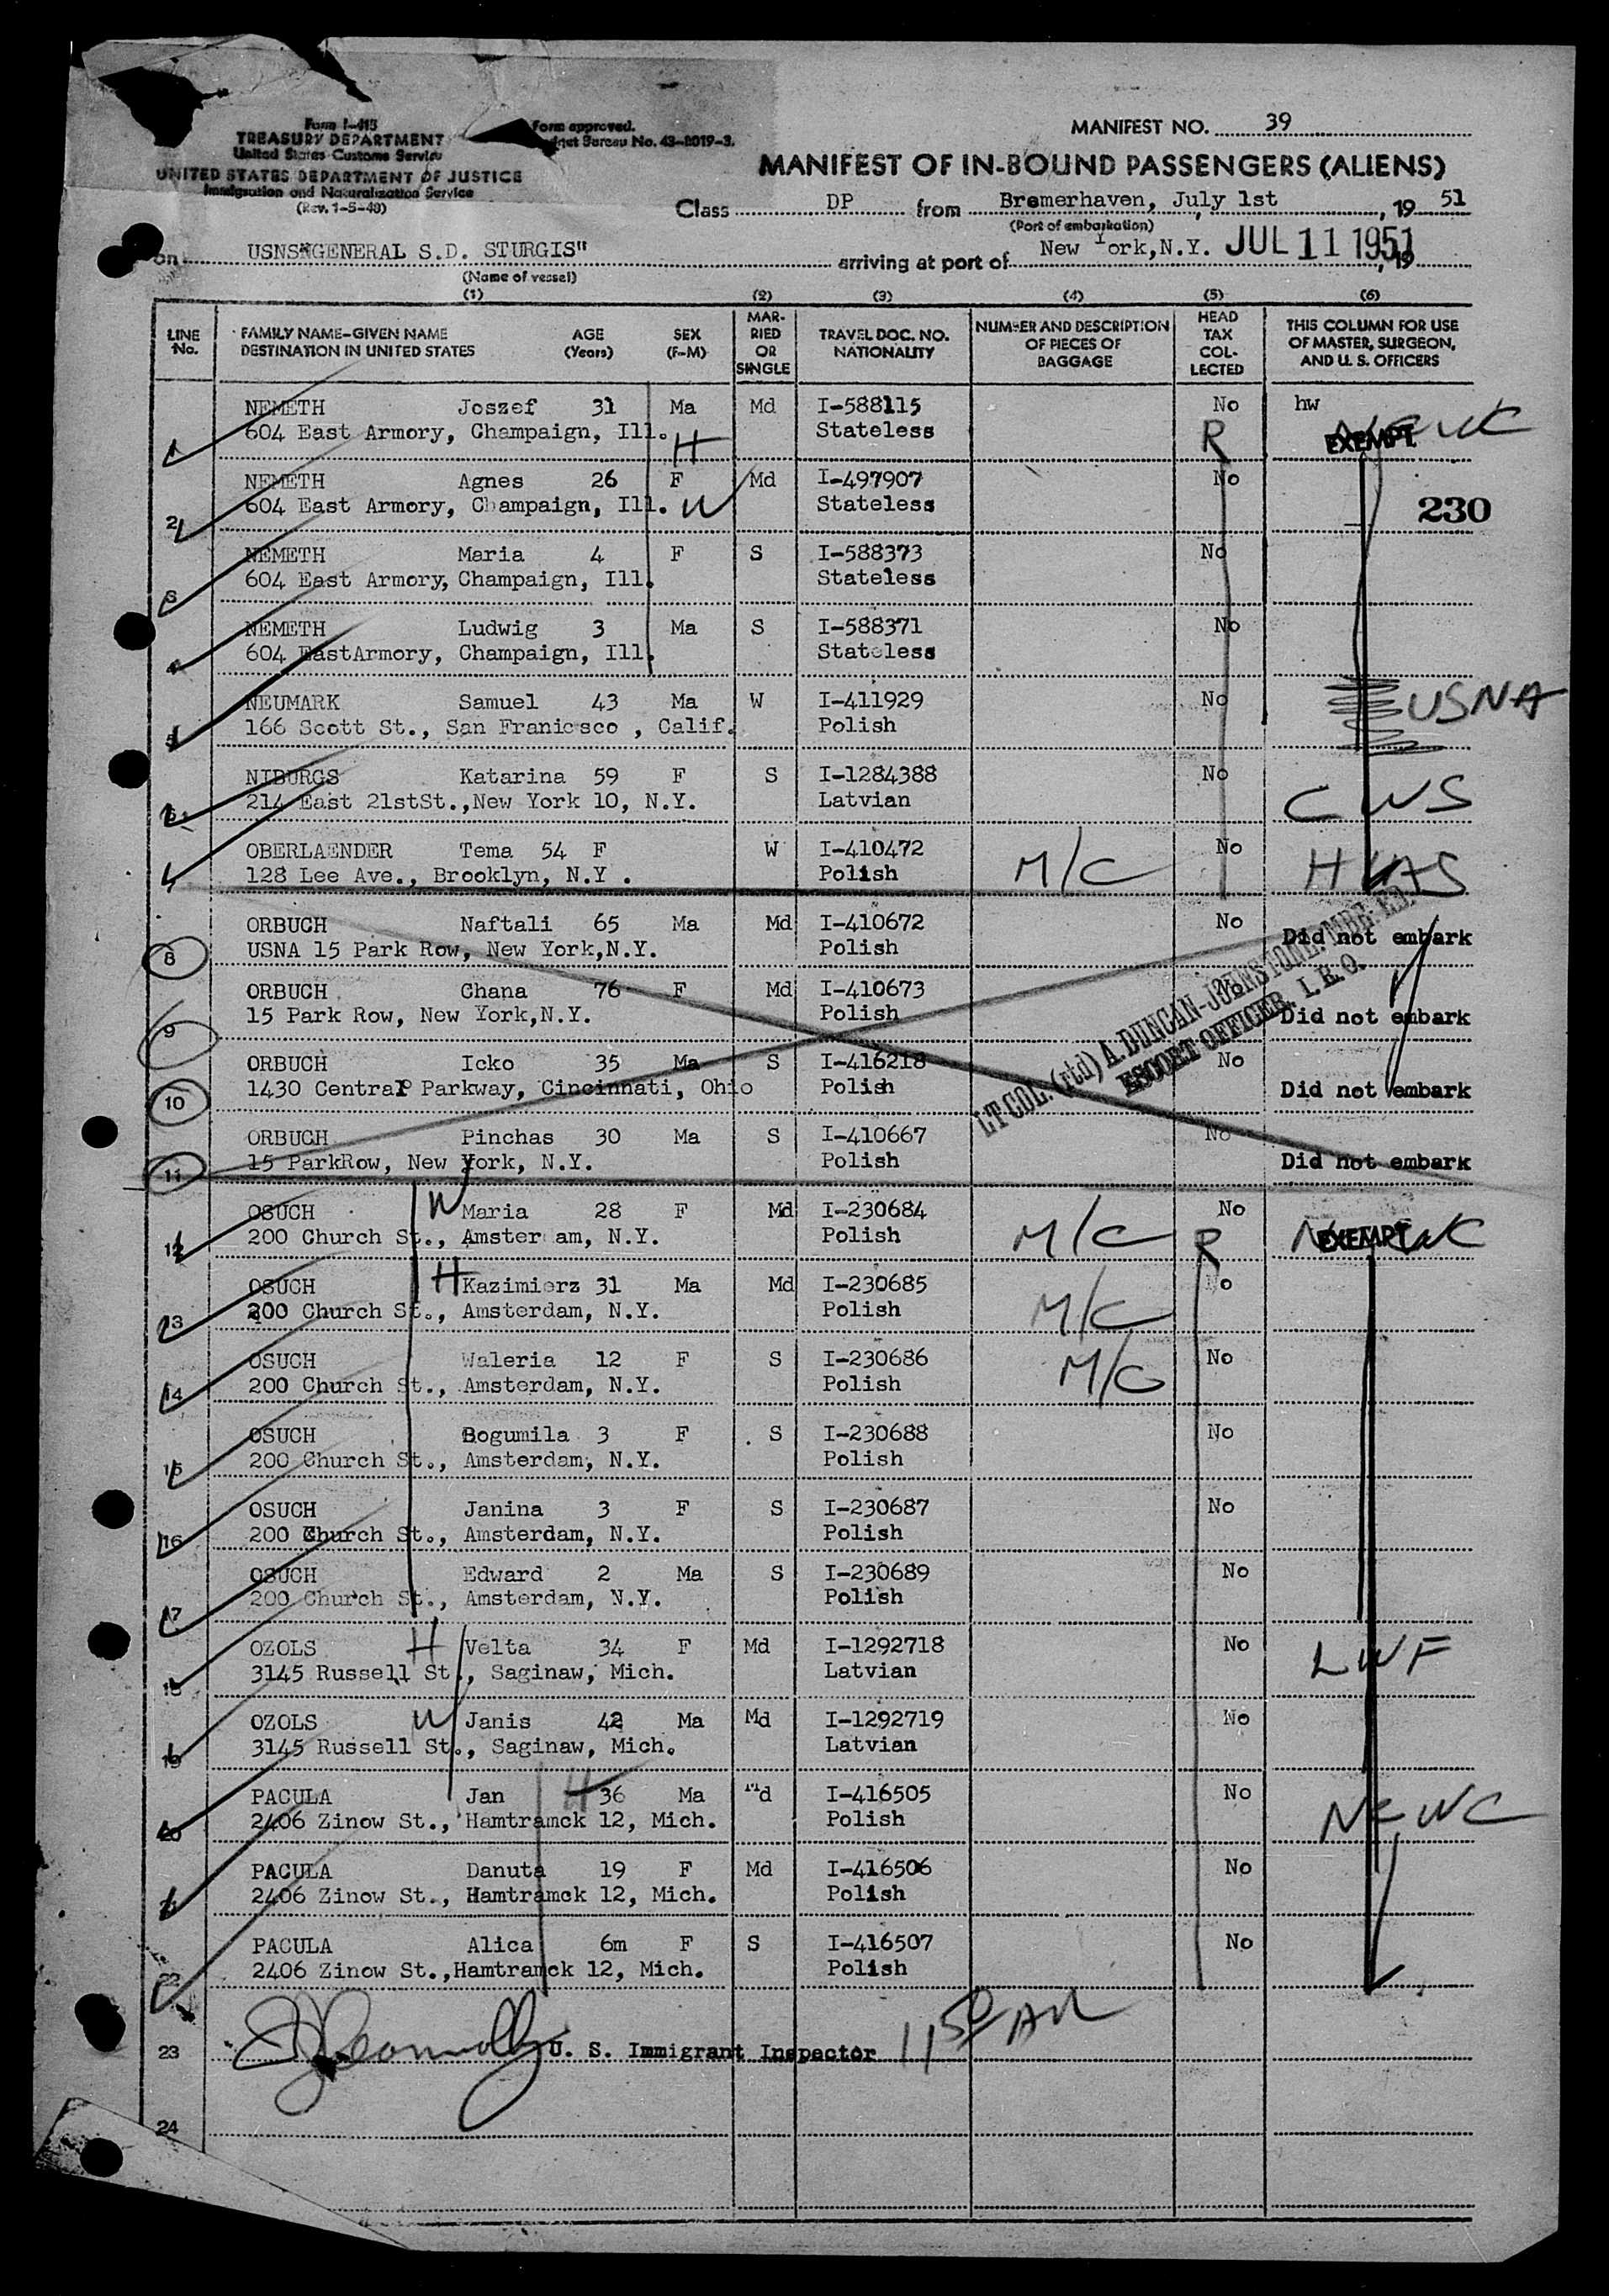 Form I-415
TREASURY DEPARTMENT
United States Customs Service
UNITED STATES DEPARTMENT OF JUSTICE
Immigration and Naturalization Service
(Rev. 1-5-48)
Form approved.
Bureau No. 43-R019-3.
MANIFEST NO. 39
MANIFEST OF IN-BOUND PASSENGERS (ALIENS)
Class DP from Bremerhaven, July 1st, 19 51
(Port of embarkation)
on USNS"GENERAL S.D. STURGIS" arriving at port of New York,N.Y. JUL 11 1951, 19
(Name of vessel)
(1) (2) (3) (4) (5) (6)
LINE No. FAMILY NAME-GIVEN NAME DESTINATION IN UNITED STATES AGE (Years) SEX (F-M) MARRIED OR SINGLE TRAVEL DOC. NO. NATIONALITY NUMBER AND DESCRIPTION OF PIECES OF BAGGAGE HEAD TAX COLLECTED THIS COLUMN FOR USE OF MASTER, SURGEON, AND U. S. OFFICERS
NEMETH Joszef 31 Ma Md I-588115 No hw
1 604 East Armory, Champaign, Ill. H Stateless R EXEMPT
NEMETH Agnes 26 F Md I-497907 No
2 604 East Armory, Champaign, Ill. W Stateless 230
NEMETH Maria 4 F S I-588373 No
3 604 East Armory, Champaign, Ill. Stateless
NEMETH Ludwig 3 Ma S I-588371 No
4 604 EastArmory, Champaign, Ill. Stateless
NEUMARK Samuel 43 Ma W I-411929 No USNA
5 166 Scott St., San Franicsco , Calif. Polish
NIBURGS Katarina 59 F S I-1284388 No
6 214 East 21stSt.,New York 10, N.Y. Latvian CWS
OBERLAENDER Tema 54 F W I-410472 No
7 128 Lee Ave., Brooklyn, N.Y . Polish M/C HIAS
ORBUCH Naftali 65 Ma Md I-410672 No Did not embark
8 USNA 15 Park Row, New York,N.Y. Polish
ORBUCH Chana 76 F Md I-410673 No
9 15 Park Row, New York,N.Y. Polish Did not embark
LT COL. (rtd) A. DUNCAN-JOHNSTONE. MBE. ED.
ESCORT OFFICER. I. R. O.
ORBUCH Icko 35 Ma S I-416218 No
10 1430 Central Parkway, Cincinnati, Ohio Polish Did not embark
ORBUCH Pinchas 30 Ma S I-410667 No
11 15 ParkRow, New York, N.Y. Polish Did not embark
OSUCH W Maria 28 F Md I-230684 No
12 200 Church St., Amster am, N.Y. Polish M/C R EXEMPT
OSUCH H Kazimierz 31 Ma Md I-230685 No
13 200 Church St., Amsterdam, N.Y. Polish M/C
OSUCH Waleria 12 F S I-230686 No
14 200 Church St., Amsterdam, N.Y. Polish M/C
OSUCH Bogumila 3 F S I-230688 No
15 200 Church St., Amsterdam, N.Y. Polish
OSUCH Janina 3 F S I-230687 No
16 200 Church St., Amsterdam, N.Y. Polish
OSUCH Edward 2 Ma S I-230689 No
17 200 Church St., Amsterdam, N.Y. Polish
OZOLS H Velta 34 F Md I-1292718 No LWF
18 3145 Russell St., Saginaw, Mich. Latvian
OZOLS W Janis 42 Ma Md I-1292719 No
19 3145 Russell St., Saginaw, Mich. Latvian
PACULA Jan H 36 Ma Md I-416505 No
20 2406 Zinow St., Hamtramck 12, Mich. Polish NCWC
PACULA Danuta 19 F Md I-416506 No
21 2406 Zinow St., Hamtramck 12, Mich. Polish
PACULA Alica 6m F S I-416507 No
22 2406 Zinow St.,Hamtramck 12, Mich. Polish
23 U. S. Immigrant Inspector 11 50 AM
24